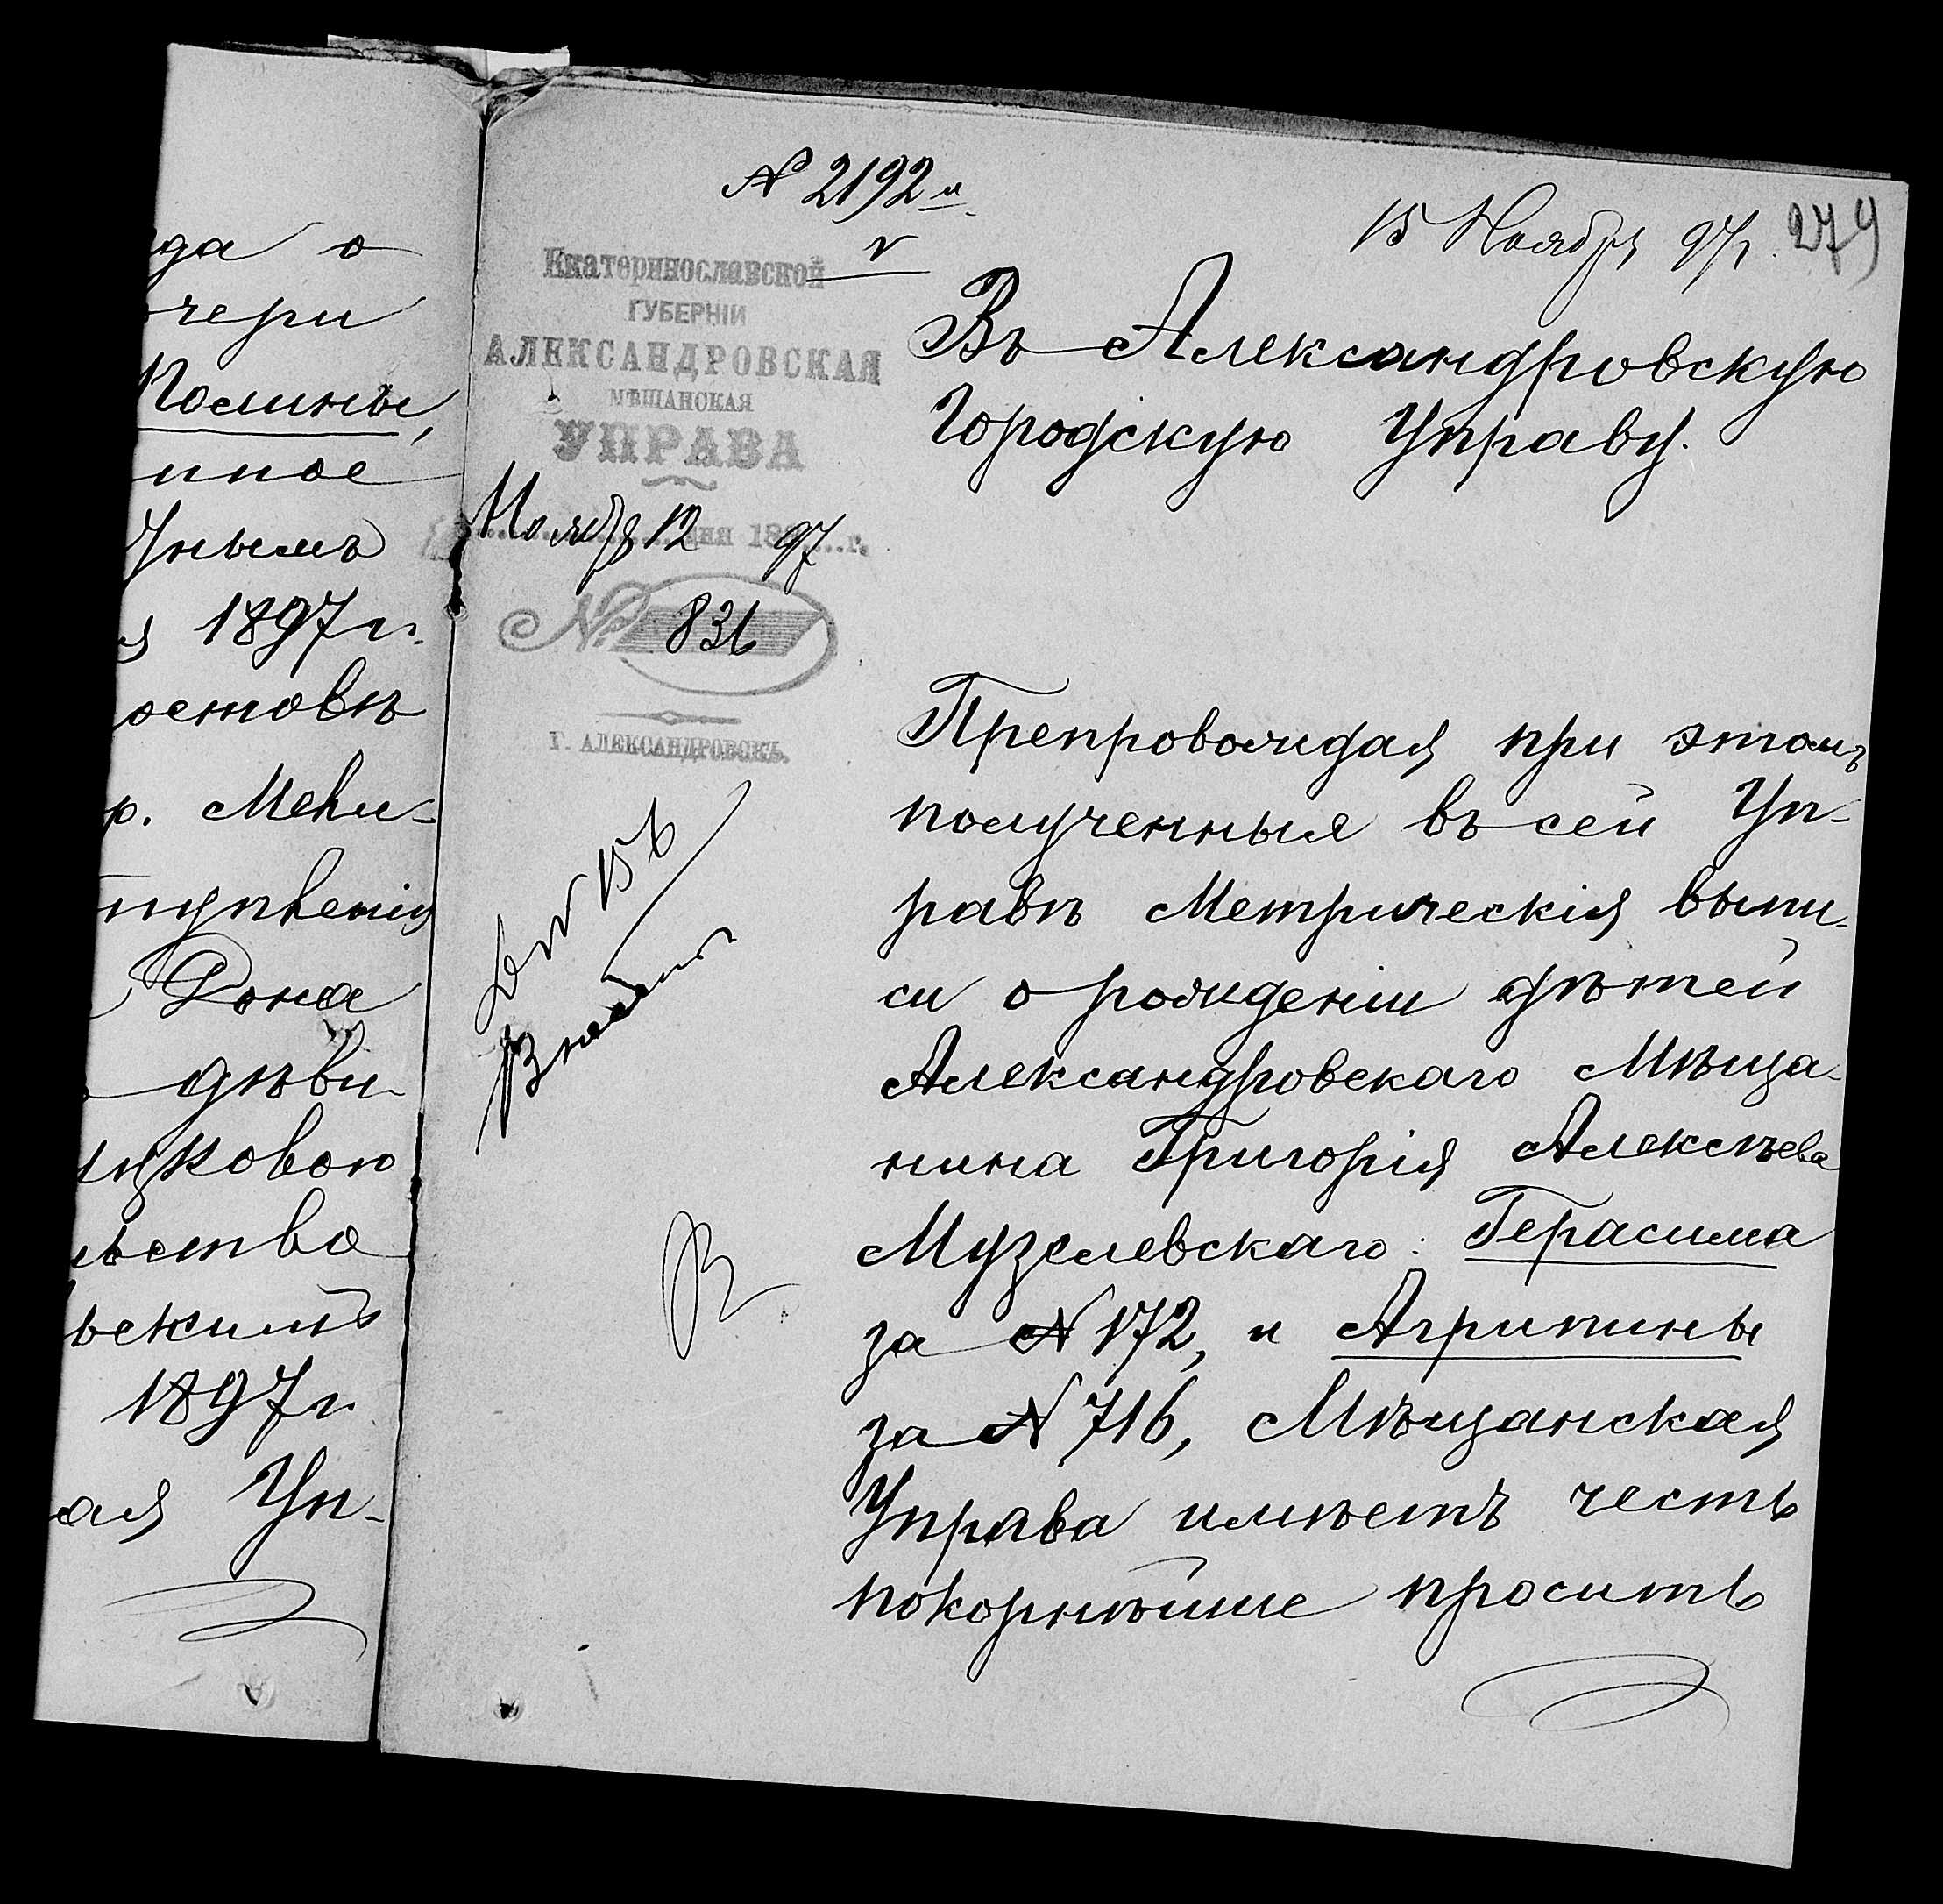 да о
чери
Полины,
нное
чнымъ
я 1897 г.
остовѣ
р. Мещ-
Дона
дѣви-
цковою
ьство
вскимъ
1897 г
ая Уп-
№ 2192
15 Ноября 97 г. 279
Екатеринославской
ГУБЕРНІИ
АЛЕКСАНДРОВСКАЯ
МѢЩАНСКАЯ
УПРАВА
Ноябр 12 дня 1897 г.
№ 836
Г. АЛЕКСАНДРОВСКЪ.
Въ Александровскую
Городскую Управу.
Препровождая при этомъ
полученныя въ сей Уп-
равѣ Метрическія выпи-
си о рожденіи дѣтей
Александровскаго Мѣща-
нина Григорія Алексѣева
Музелевскаго: Герасима
за № 172, и Агрипины
за № 716, Мѣщанская
Управа имѣетъ честь
покорнѣйше просить